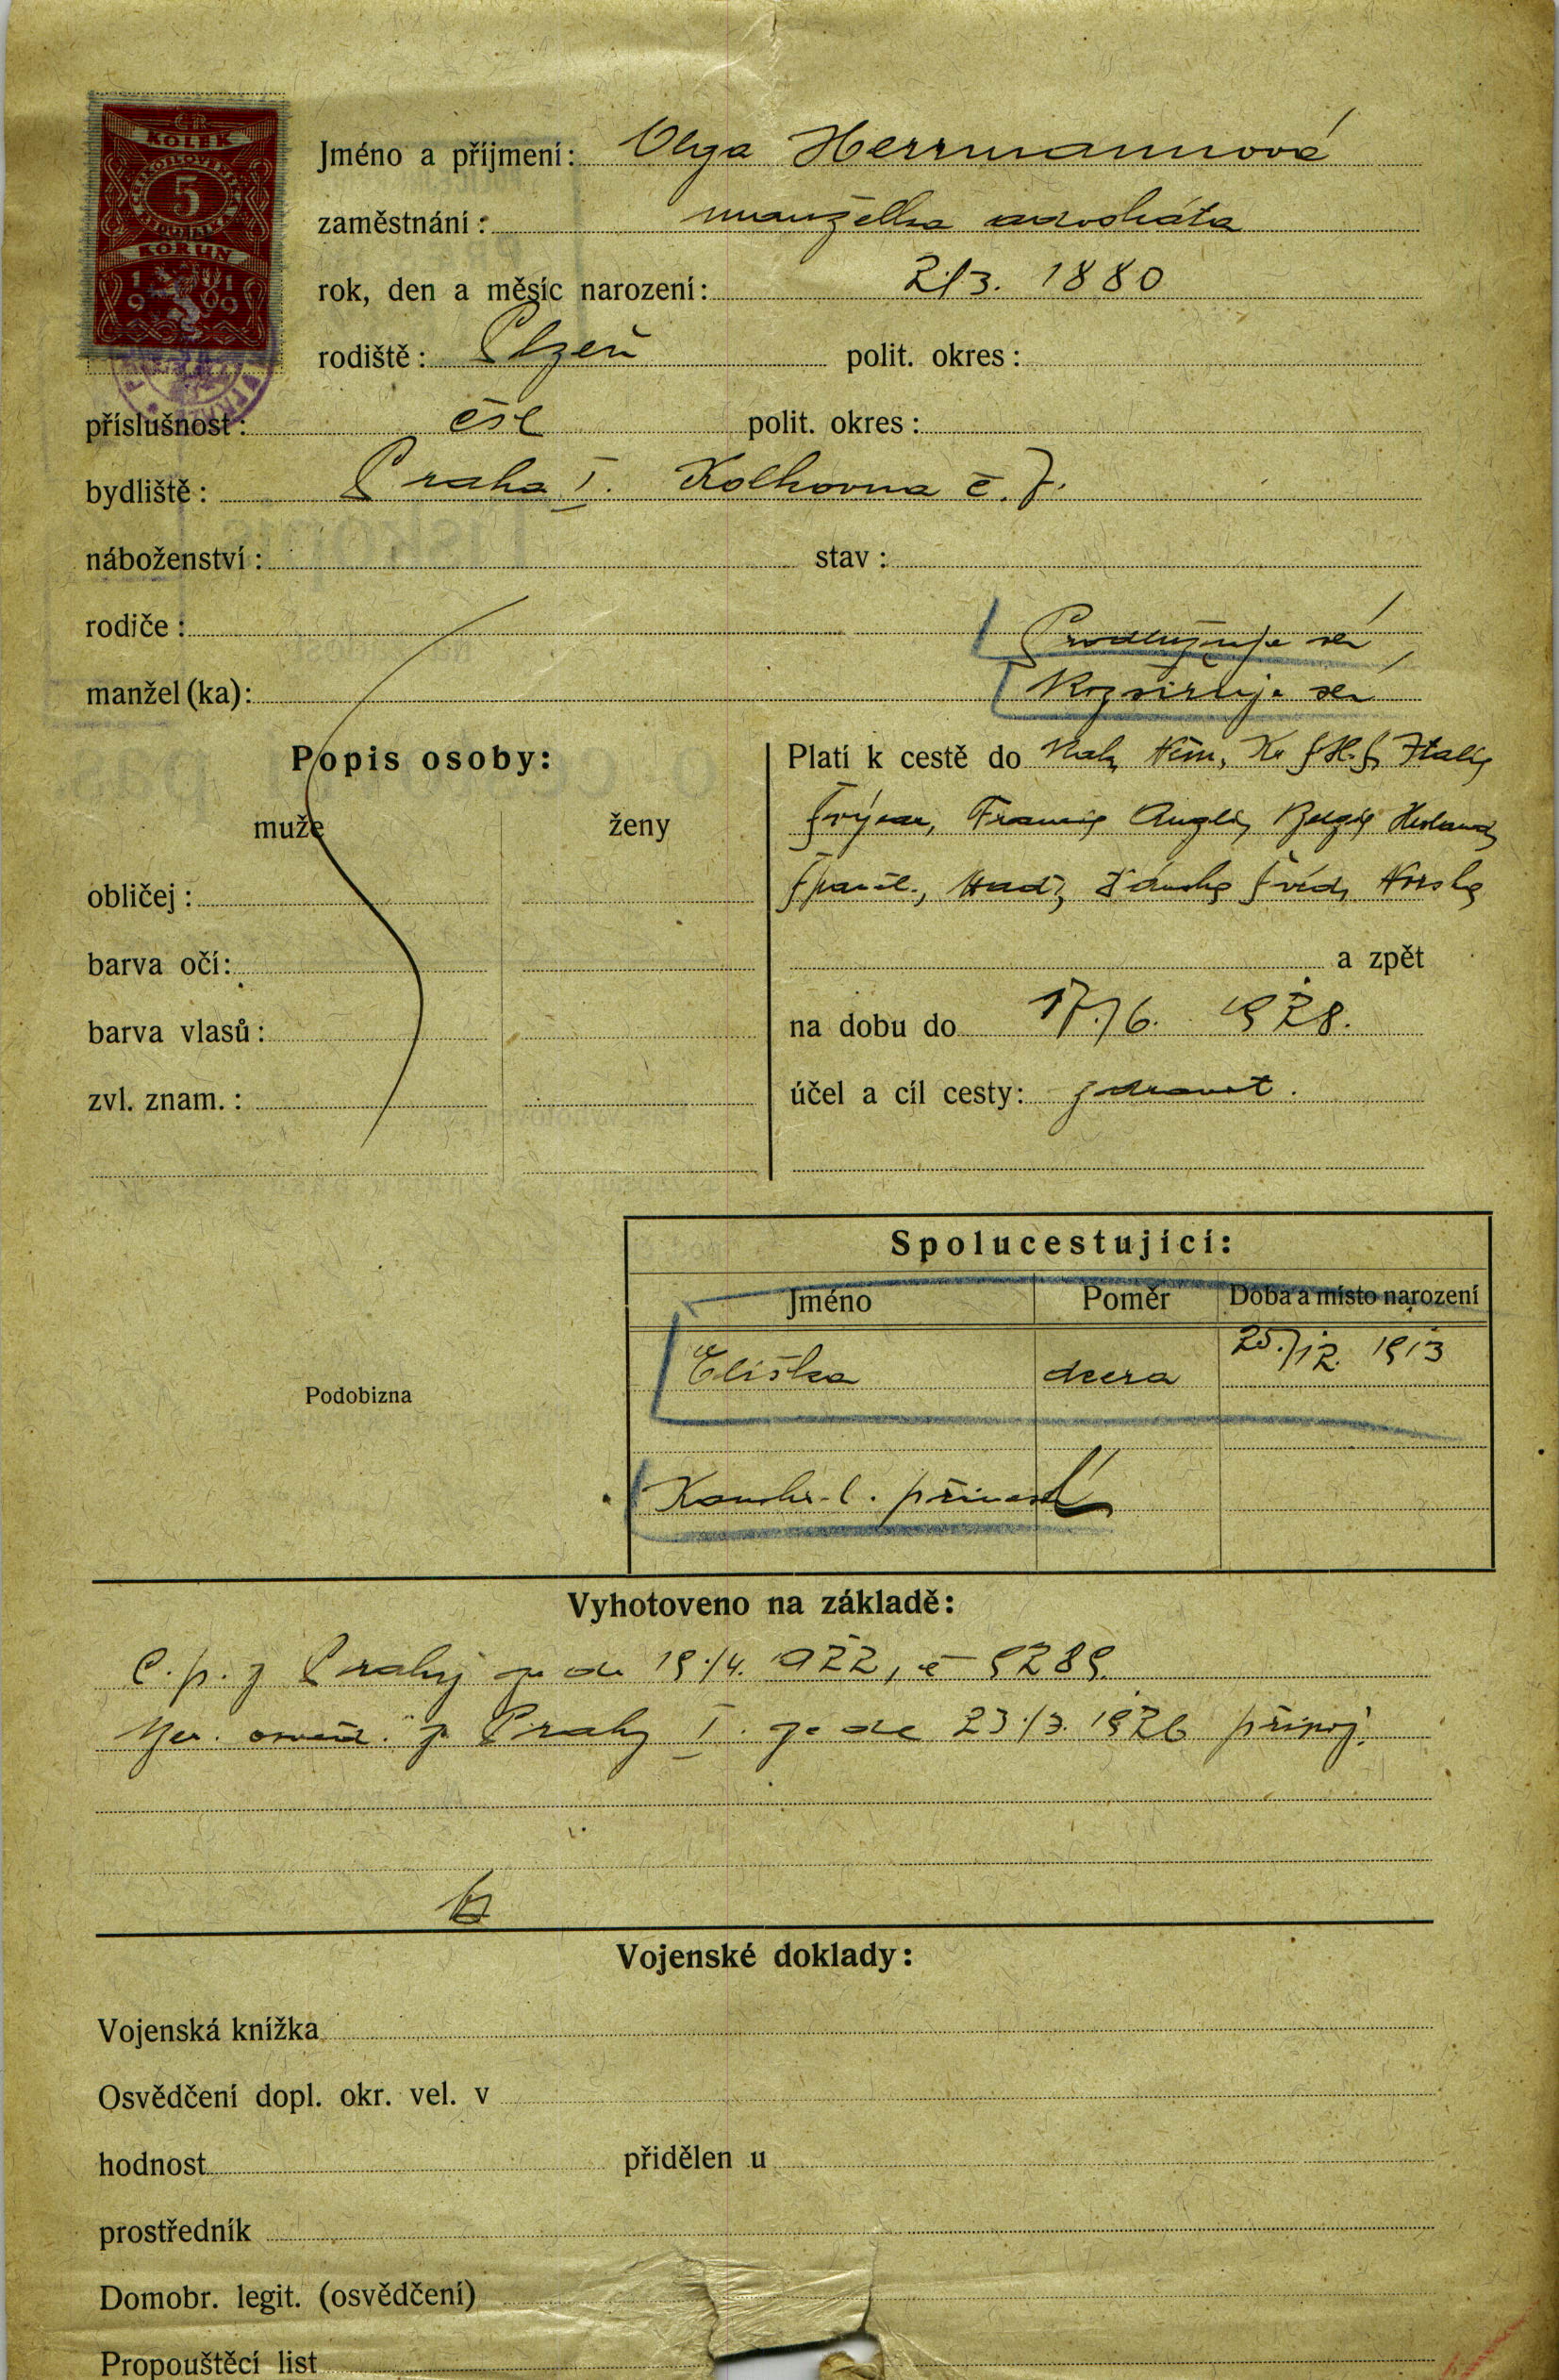 KOLEK
5
KORUN
1919
Jméno a příjmení: Olga Herrmannová
zaměstnání: manželka advokáta
rok, den a měsíc narození: 2/3. 1880
rodiště: Plzeň polit. okres:
příslušnost: čsl polit. okres:
bydliště: Praha I. Kolkovna č. 7.
náboženství: stav:
rodiče: Prodlužuje se
manžel(ka): Rozšiřuje se
Popis osoby:
muže ženy
obličej:
barva očí:
barva vlasů:
zvl. znam.:
Platí k cestě do Rak, Něm, Kr. S.H.S, Italie
Švýcar, Francie Anglie, Belgie Holand,
Španěl., Maď, Dánska Švéd, Norska
a zpět
na dobu do 17./6. 1928.
účel a cíl cesty: zdravot.
Spolucestující:
Jméno Poměr Doba a místo narození
Eliška dcera 25./12. 1913
Podobizna
Vyhotoveno na základě:
C. p. z Prahy ze dne 19./4. 1922, č 9289.
z Prahy I. ze dne 23./3. 1926 připoj.
Vojenské doklady:
Vojenská knížka
Osvědčení dopl. okr. vel. v
hodnost přidělen u
prostředník
Domobr. legit. (osvědčení)
Propouštěcí list